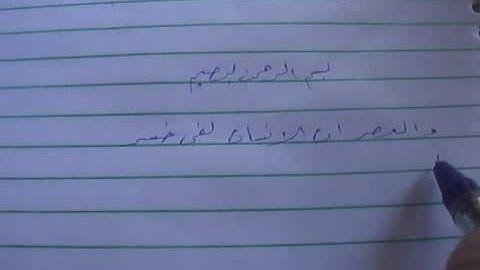 بسم الرحمن الرحيم
والعصر ان الانسان لفي خسر